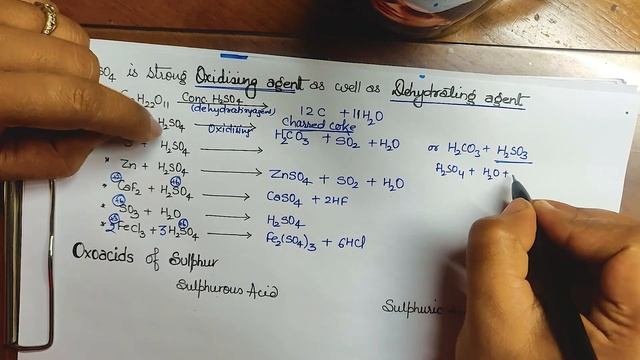 SO4 is strong Oxidising agent as well as Dehydrating agent
H22O11 Conc. H2SO4 (dehydrating agent) 12C + 11H2O
Charred coke
H2SO4 Oxidising H2CO3 + SO2 + H2O or H2CO3 + H2SO3
+ H2SO4 → H2SO4 + H2O +
* Zn + H2SO4 → ZnSO4 + SO2 + H2O
* CaF2 + H2SO4 → CaSO4 + 2HF
* SO3 + H2O → H2SO4
* 2FeCl3 + 3H2SO4 → Fe2(SO4)3 + 6HCl
Oxoacids of Sulphur
Sulphurous Acid Sulphuric